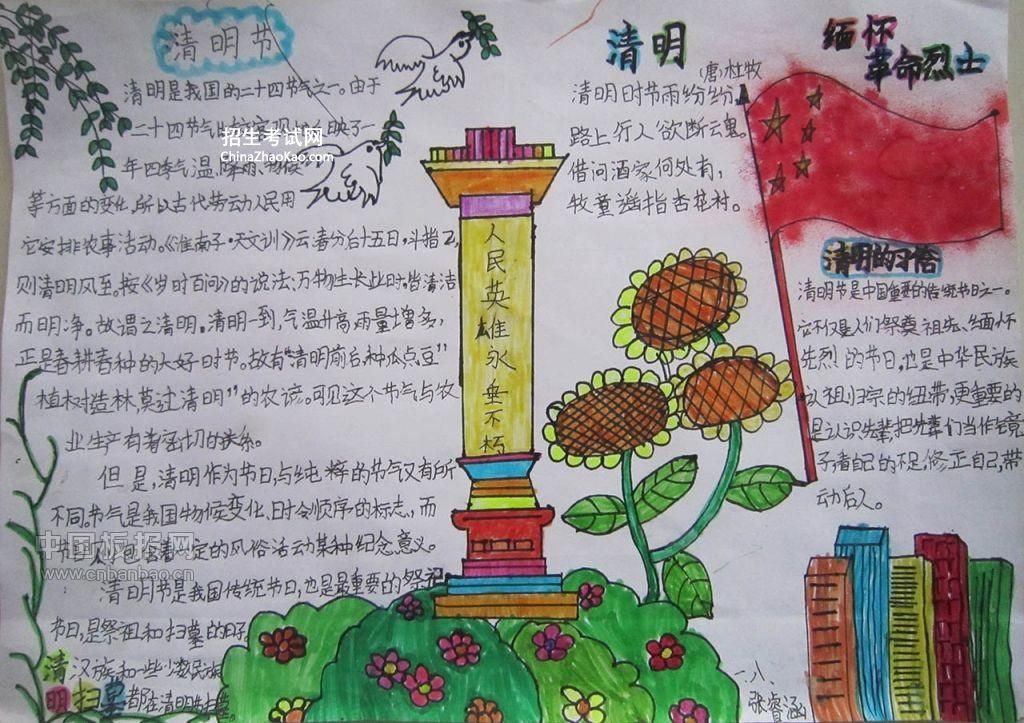 清明节
清明是我国的二十四节气之一。由于
二十四节气
招生考试网
ChinaZhaoKao.com
映了一
年四季气温、降雨、物候
等方面的变化,所以古代劳动人民用
它安排农事活动。《淮南子·天文训》云:春分后十五日,斗指乙,
则清明风至。按《岁时百问》的说法:万物生长此时,皆清洁
而明净。故谓之清明。清明一到,气温升高,雨量增多,
正是春耕春种的大好时节。故有“清明前后,种瓜点豆”
植树造林,莫过清明”的农谚。可见这个节气与农
业生产有着密切的关系。
但是,清明作为节日,与纯粹的节气又有所
不同。节气是我国物候变化、时令顺序的标志,而
节日则包含着一定的风俗活动某种纪念意义。
中国板报网
www.cnbanbao.cn
清明节是我国传统节日,也是最重要的祭祀
节日,是祭祖和扫墓的日子。
汉族和一些少数民族
都在清明节扫墓。
清明扫墓
人民英雄永垂不朽
清明
(唐)杜牧
清明时节雨纷纷,
路上行人欲断魂。
借问酒家何处有,
牧童遥指杏花村。
缅怀
革命烈士
清明的习俗
清明节是中国重要的传统节日之一。
它不仅是人们祭奠祖先、缅怀
先烈的节日,也是中华民族
认祖归宗的纽带,更重要的
是认识先辈,把先辈们当作镜
子看自己的不足,修正自己,带
动后人。
一.八、
张睿涵